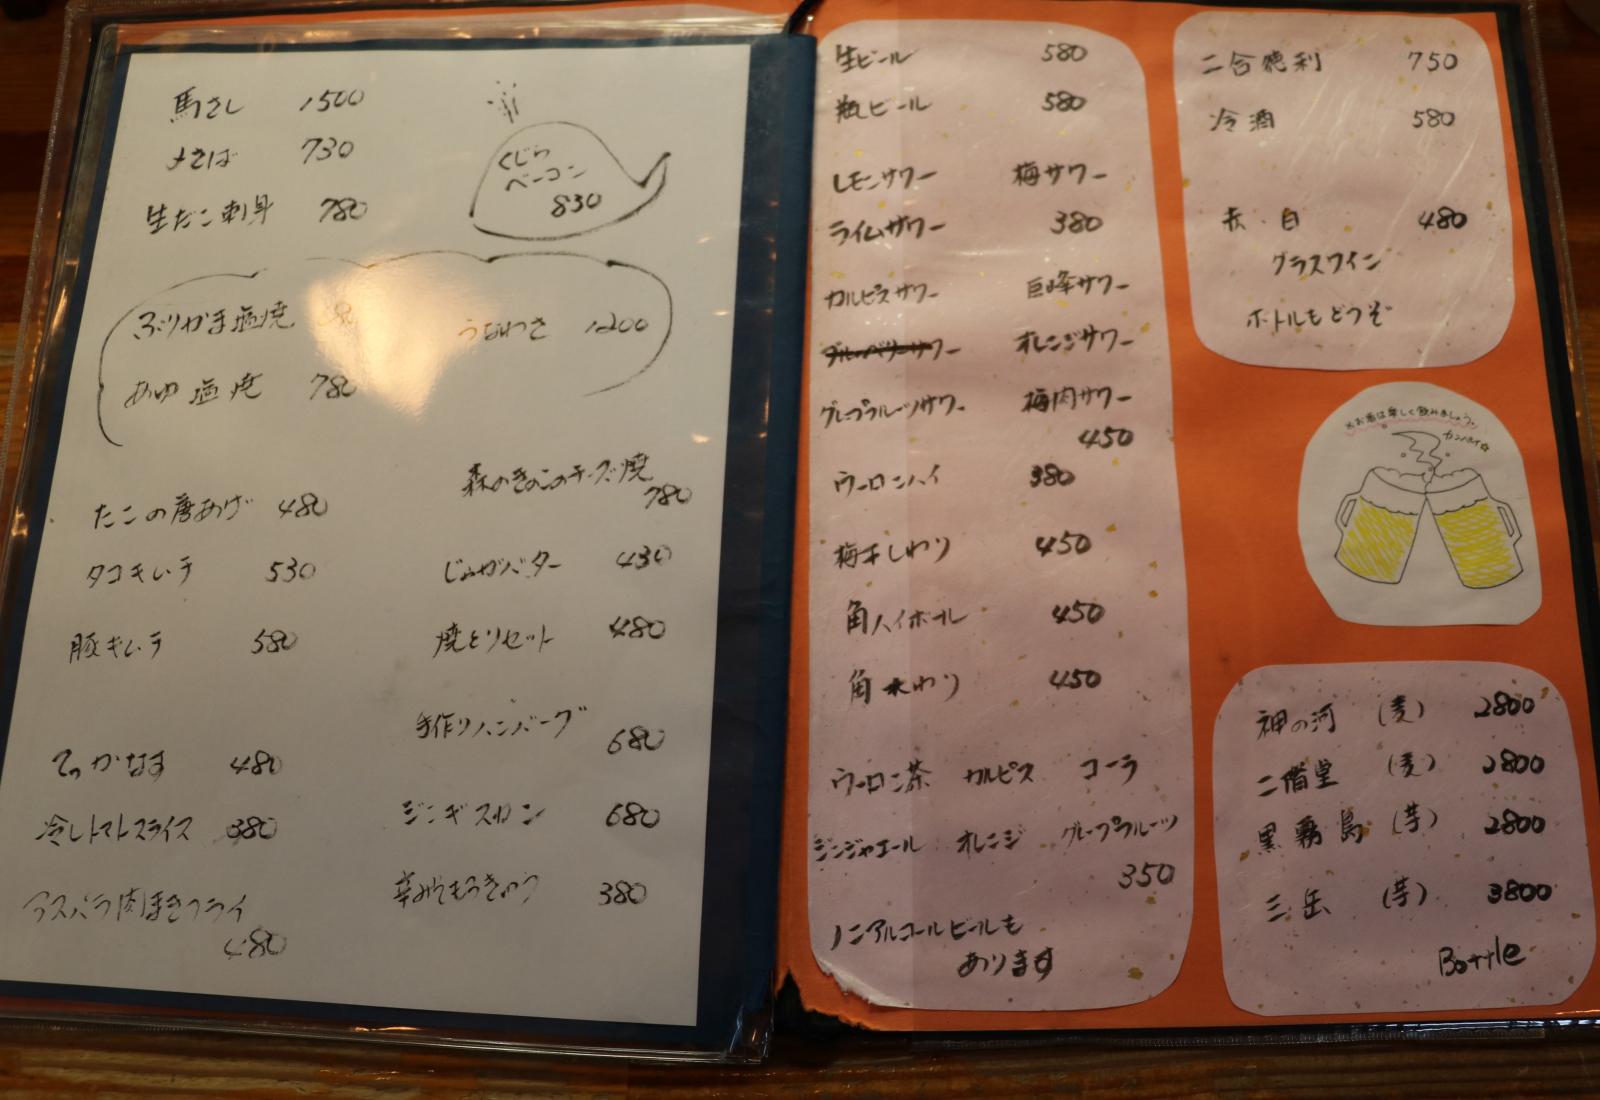 馬さし 1500
〆さば 730
生たこ刺身 780
くじら
ベーコン
830
ぶりかま塩焼
うなわさ 1200
あゆ塩焼 780
森のきのこのチーズ焼
780
たこの唐あげ 480
タコキムチ 530
じゃがバター 430
豚キムチ 580
焼とりセット 480
手作りハンバーグ
680
てっかなす 480
ジンギスカン 680
冷しトマトスライス 380
辛みそもろきゅう 380
アスパラ肉まきフライ
480
生ビール 580
瓶ビール 580
レモンサワー 梅サワー
ライムサワー 380
カルピスサワー 巨峰サワー
ブルーベリーサワー オレンジサワー
グレープフルーツサワー 梅肉サワー
450
ウーロンハイ 380
梅干しわり 450
角ハイボール 450
角水わり 450
ウーロン茶 カルピス コーラ
ジンジャエール オレンジ グレープフルーツ
350
ノンアルコールビールも
あります
二合徳利 750
冷酒 580
赤・白 480
グラスワイン
ボトルもどうぞ
※お酒は楽しく飲みましょう。
カンパイ☆
神の河 (麦) 2800
二階堂 (麦) 2800
黒霧島 (芋) 2800
三岳 (芋) 3800
Bottle